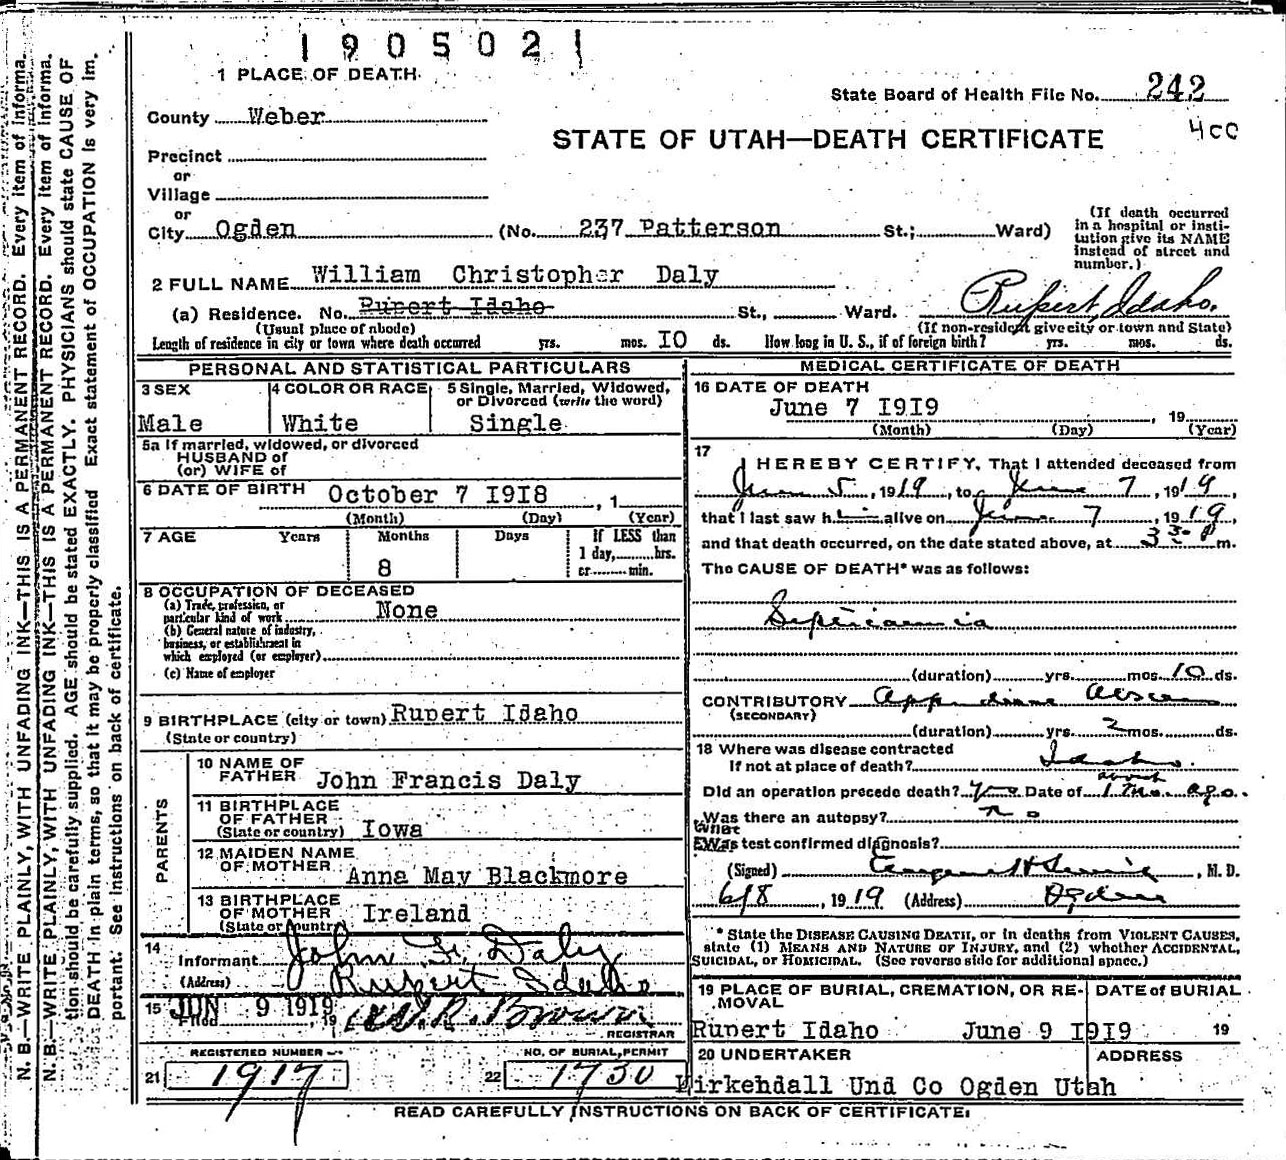 1905021
1 PLACE OF DEATH
State Board of Health File No. 242
County Weber
4CC
STATE OF UTAH—DEATH CERTIFICATE
Precinct
or
Village
or
City Ogden (No. 237 Patterson St.; Ward)
(If death occurred in a hospital or insti-
tution give its NAME
instead of street and
number.)
2 FULL NAME William Christopher Daly
(a) Residence. No. Rupert Idaho St., Ward. Rupert, Idaho.
(Usual place of abode) (If non-resident give city or town and State)
Length of residence in city or town where death occurred yrs. mos. IO ds. How long in U. S., if of foreign birth? yrs. mos. ds.
PERSONAL AND STATISTICAL PARTICULARS
3 SEX 4 COLOR OR RACE 5 Single, Married, Widowed,
or Divorced (write the word)
Male White Single
5a If married, widowed, or divorced
HUSBAND of
(or) WIFE of
6 DATE OF BIRTH October 7 I9I8, 1
(Month) (Day) (Year)
7 AGE Years Months Days If LESS than
1 day, hrs.
8 or min.
8 OCCUPATION OF DECEASED
(a) Trade, profession, or
particular kind of work None
(b) General nature of industry,
business, or establishment in
which employed (or employer)
(c) Name of employer
9 BIRTHPLACE (city or town) Rupert Idaho
(State or country)
PARENTS
10 NAME OF
FATHER John Francis Daly
11 BIRTHPLACE
OF FATHER
(State or country) Iowa
12 MAIDEN NAME
OF MOTHER Anna May Blackmore
13 BIRTHPLACE
OF MOTHER Ireland
(State or country)
14
Informant John F. Daly
(Address) Rupert Idaho
15 JUN 9 1919
Filed , 19 Brown
REGISTRAR
REGISTERED NUMBER NO. OF BURIAL PERMIT
21 1917 22 1730
MEDICAL CERTIFICATE OF DEATH
16 DATE OF DEATH
June 7 I9I9 , 19
(Month) (Day) (Year)
17
I HEREBY CERTIFY, That I attended deceased from
June 5, 1919, to June 7, 1919,
that I last saw him alive on June 7, 1919,
and that death occurred, on the date stated above, at 330 P m.
The CAUSE OF DEATH* was as follows:
Septicaemia
(duration) yrs. mos. 10 ds.
CONTRIBUTORY Abscess
(SECONDARY)
(duration) yrs. 2 mos. ds.
18 Where was disease contracted
If not at place of death? Idaho.
about
Did an operation precede death? Yes Date of 1 mo. ago.
Was there an autopsy? no
What
Was test confirmed diagnosis?
(Signed) , M. D.
6/8, 1919 (Address) Ogden
* State the DISEASE CAUSING DEATH, or in deaths from VIOLENT CAUSES,
state (1) MEANS AND NATURE OF INJURY, and (2) whether ACCIDENTAL,
SUICIDAL, or HOMICIDAL. (See reverse side for additional space.)
19 PLACE OF BURIAL, CREMATION, OR RE-
MOVAL DATE of BURIAL
Rupert Idaho June 9 I9I9 19
20 UNDERTAKER ADDRESS
Kirkendall Und Co Ogden Utah
READ CAREFULLY INSTRUCTIONS ON BACK OF CERTIFICATE.
N. B.—WRITE PLAINLY, WITH UNFADING INK—THIS IS A PERMANENT RECORD. Every item of informa
N. B.—WRITE PLAINLY, WITH UNFADING INK—THIS IS A PERMANENT RECORD. Every item of informa
tion should be carefully supplied. AGE should be stated EXACTLY. PHYSICIANS should state CAUSE OF
DEATH in plain terms, so that it may be properly classified Exact statement of OCCUPATION is very im.
portant. See instructions on back of certificate.